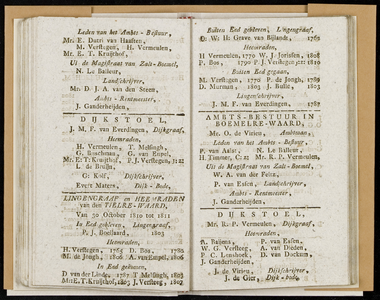 Leden van het Ambts-Bestuur,
Mr. E. Dutri van Haaften,
M. Verstegen, H. Vermeulen
Mr. E. T. Kruijthof,
Uit de Magistraat van Zalt-Boemel,
N. Le Bailleur,
Landschrijver,
Mr. D. J. A. van den Steen,
Ambts-Rentmeester,
J. Ganderheijden.
DIJKSTOEL,
J. M. F. van Everdingen, Dijkgraaf,
Heemraden,
H. Vermeulen, T. Melsingh,
G. Boschman, G. van Empel,
Mr. E. T. Kruijthof, P. J. Verstegen,
L. de Bruijn.
G. Kolf, Dijkschrijver,
Evert Maters, Dijk-Bode,
LINGENGRAAF en HEEMRADEN
van den TIELRE-WAARD,
Van 30 October 1810 tot 1811
In Eed gebleven, Lingengraaf,
P. J. Boellaard, 1803
Heemraden,
H. Verstegen, 1765 D. Bos, 1780
M. de Jongh, 1806 A. van Empel, 1806
In Eed gekomen,
D. van der Linde, 1787 T Melsingh, 1803
Mr. E. T. Kruijthof, 1803 J. Versteeg, 1802
Buiten Eed gebleven, Lingengraaf,
C. W. H. Grave van Bijlandt, 1785
Heemraden,
H Vermeulen, 1770 W. J. Jorissen, 1808
P. Bos, 1790 P. J. Verstegen, 1810
Buiten Eed gegaan,
M. Verstegen, 1770 P. de Jongh, 1789
D. Murman, 1803 J. Buijse, 1803
Lingenschrijver,
J. M. F. van Everdingen, 1787
AMBTS-BESTUUR IN
BOEMELRE-WAARD,
Mr. O. de Virieu, Ambtman,
Leden van het Ambts-Bestuur,
P. van Aalst, N. Le Bailleur,
H. Timmer, Mr. R. P. Vermeulen,
Uit de Magistraat van Zalt-Boemel,
W. A. van der Feen,
P. van Essen, Landschrijver,
Ambts-Rentmeester,
J. Ganderheijden.
DIJKSTOEL,
Mr. R. P. Vermeulen, Dijkgraaf,
Heemraden,
A. Baijens, P. van Essen,
W. G. Versteeg, A. van Dieden,
P. C. Lenshoek, D. van Dockum,
J. Ganderheijden,
Js. de Virieu, Dijkschrijver,
J. de Gier, Dijk-bode,